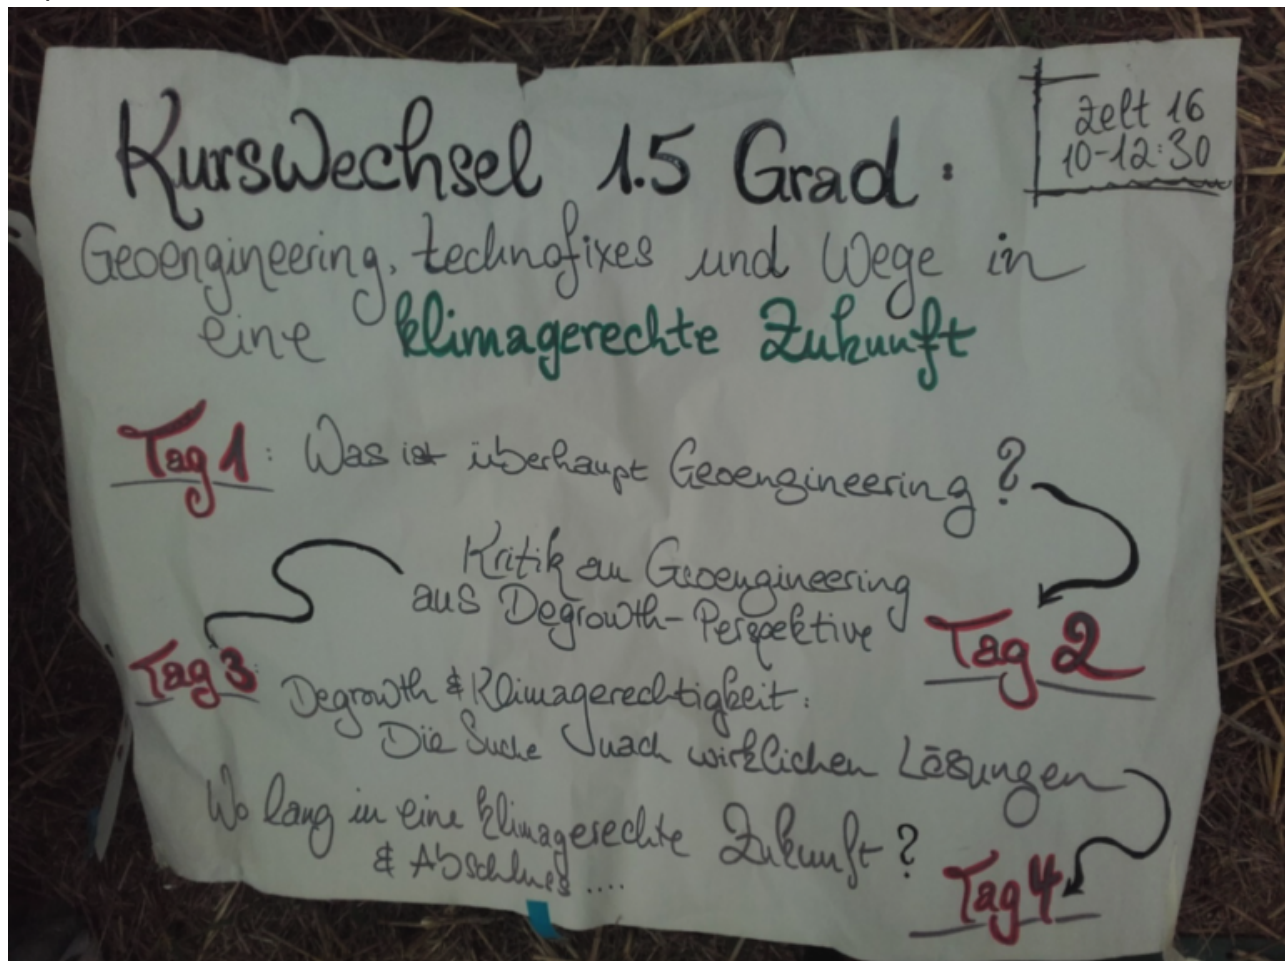 Zelt 16
10-12:30
Kurswechsel 1.5 Grad:
Geoengineering, technofixes und Wege in
eine klimagerechte Zukunft
Tag 1: Was ist überhaupt Geoengineering?
Kritik an Geoengineering
aus Degrowth-Perspektive
Tag 2
Tag 3:
Degrowth & Klimagerechtigkeit:
Die Suche nach wirklichen Lösungen
Wo lang in eine klimagerechte Zukunft?
& Abschluss ....
Tag 4